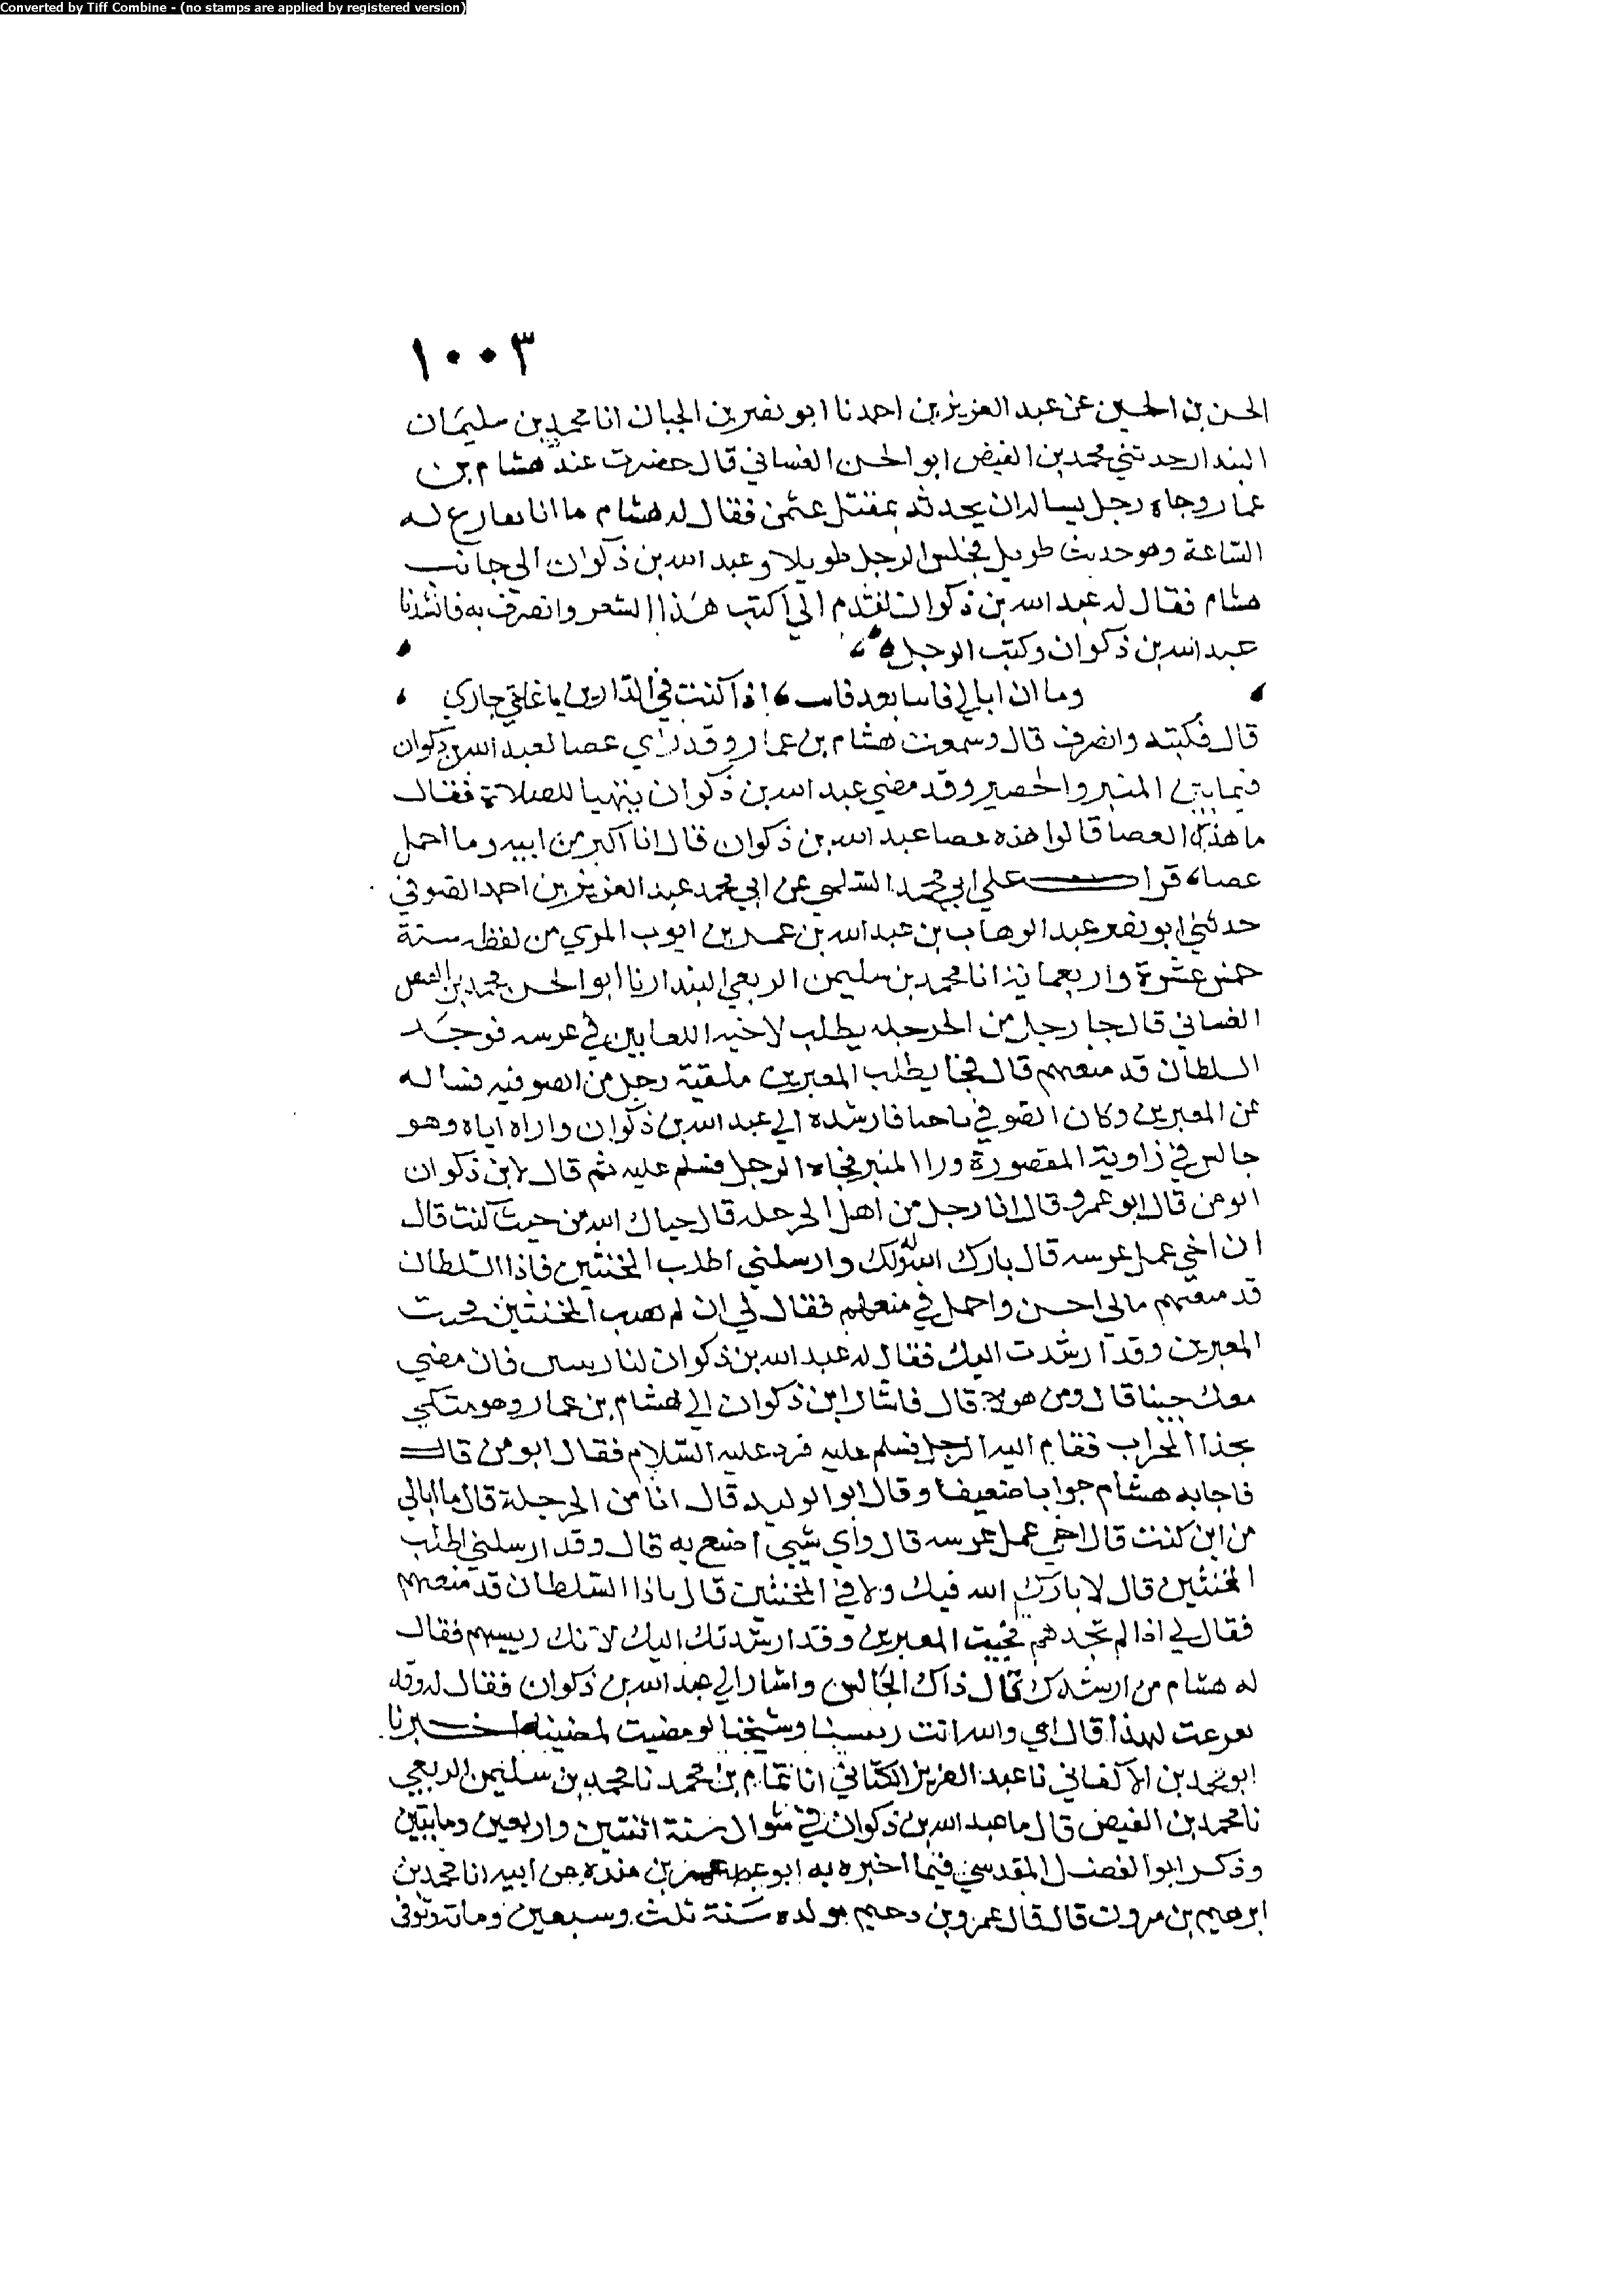 Converted by Tiff Combine - (no stamps are applied by registered version)
١٠٠٣
الحسن بن الحسين عن عبد العزيز بن احمد نا ابو نصر بن الجبان انا محمد بن سليمان
البندار حدثني محمد بن الفيض ابو الحسن الغساني قال حضرت عند هشام بن
عمار وجاه رجل يساله ان يحدثه بمقتل عثمن فقال له هشام ما انا بفارع له
الساعة وهو حديث طويل فجلس الرجل طويلا وعبد الله بن ذكوان الى جانب
هشام فقال له عبد الله بن ذكوان تقدم الي اكتب هذا الشعر وانصرف به فانشدنا
عبد الله بن ذكوان وكتب الرجل
وما ان ابالي فاسا بعد فاس اذا كنت في الدارين يا غايتي جاري
قال فكتبه وانصرف قال وسمعت هشام بن عمار وقد راي عصا لعبد الله بن ذكوان
فيما بين المنبر والحصير وقد مضي عبد الله بن ذكوان يتهيا للصلاة فقال
ما هذه العصا قالوا هذه عصا عبد الله بن ذكوان قال انا اكبر من ابيه وما احمل
عصا قرات علي ابي محمد السلمي عن ابي محمد عبد العزيز بن احمد الصوفي
حدثني ابو نصر عبد الوهاب بن عبد الله بن عمر بن ايوب المري من لفظه سنة
خمس عشرة واربعماية انا محمد بن سليمن الربعي البندار نا ابو الحسن محمد بن الفيض
الغساني قال جا رجل من الحرجله يطلب لاخيه اللعابين في عرسه فوجد
السلطان قد منعهم قال فجا يطلب المعبرين فلقيه رجل من الصوفيه فساله
عن المعبرين وكان الصوفي ماجنا فارشده الي عبد الله بن ذكوان واراه اياه وهو
جالس في زاوية المقصورة ورا المنبر فجاه الرجل فسلم عليه ثم قال لابن ذكوان
ابو من قال ابو عمرو قال انا رجل من اهل الحرجله قال حياك الله من حيث كنت قال
ان اخي عمل عرسه قال بارك الله له ولك وارسلني اطلب المخنثين فاذا السلطان
قد منعهم قال احسن واجمل في منعهم فقال لي ان لم تصب المخنثين فجيت
المعبرين وقد ارشدت اليك فقال له عبد الله بن ذكوان لنا رييس فان مضي
معك جينا قال ومن هو قال فاشار ابن ذكوان الي هشام بن عمار وهو متكي
بحذا المحراب فقام اليه الرجل فسلم عليه فرد عليه السلام فقال ابو من قال
فاجابه هشام جوابا ضعيفا وقال ابو الوليد قال انا من الحرجلة قال ما ابالي
من اين كنت قال اخي عمل عرسه قال واي شيي اصنع به قال وقد ارسلني اطلب
المخنثين قال لا بارك الله فيك ولا في المخنثين قال فاذا السلطان قد منعهم
فقال لي اذا لم تجدهم فجيت المعبرين وقد ارشدتك اليك لانك رييسهم فقال
له هشام من ارشدك قال ذاك الجالس واشار الي عبد الله بن ذكوان فقال له وقد
تفرغت لهذا قال اي والله انت رييسنا وشيخنا لو مضيت لمضينا اخبرنا
ابو محمد بن الاكفاني نا عبد العزيز الكتاني انا تمام بن محمد نا محمد بن سليمن الربعي
نا محمد بن الفيض قال مات عبد الله بن ذكوان في شوال سنة اثنتين واربعين ومايتين
وذكر ابو الفضل المقدسي فيما اخبره به ابو عمرو بن منده عن ابيه انا محمد بن
ابرهيم بن مروان قال قال عمرو بن دحيم مولده سنة ثلث وسبعين وماية وتوفي